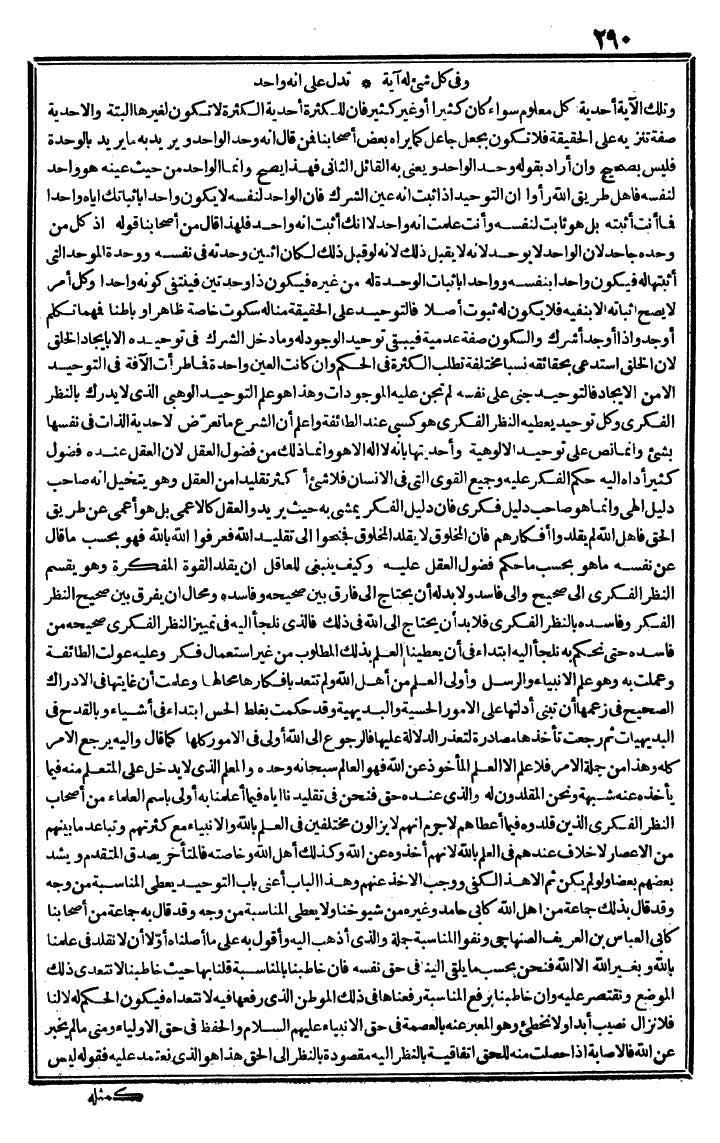 ٢٩٠
وفي كل شئ له آية * تدل على انه واحد
وتلك الآية أحدية كل معلوم سواء كان كثيرا أو غير كثير فان للكثرة أحدية الكثرة لا تكون لغيرها البتة والاحدية
صفة تنزيه على الحقيقة فلا تكون بجعل جاعل كما يراه بعض أصحابنا فمن قال انه وحد الواحد ويريد به ما يريد بالوحدة
فليس بصحيح وان أراد بقوله وحد الواحد ويعنى به القائل الثانى فهذا يصح وانما الواحد من حيث عينه هو واحد
لنفسه فاهل طريق الله رأوا ان التوحيد اذا ثبت انه عين الشرك فان الواحد لنفسه لا يكون واحدا باثباتك اياه واحدا
فما أنت أثبته بل هو ثابت لنفسه وأنت علمت انه واحد لا انك أثبت انه واحد فلهذا قال من أصحابنا قوله اذ كل من
وحده جاحد لان الواحد لا يوحد لانه لا يقبل ذلك لانه لو قبل ذلك لكان اثنين وحدته فى نفسه ووحدة الموحد التى
أثبتها له فيكون واحدا بنفسه وواحدا باثبات الوحدة له من غيره فيكون ذا وحدتين فينتفى كونه واحدا وكل أمر
لا يصح اثباته الا بنفيه فلا يكون له ثبوت أصلا فالتوحيد على الحقيقة منا له سكوت خاصة ظاهرا وباطنا فهما تكلم
أوجد واذا أوجد أشرك والسكون صفة عدمية فيبقى توحيد الوجود له وما دخل الشرك فى توحيده الا بايجاد الخلق
لان الخلق استدعى بحقائقه نسبا مختلفة تطلب الكثرة فى الحكم وان كانت العين واحدة فما طرأت الآفة فى التوحيد
الا من الايجاد فالتوحيد جنى على نفسه لم تجن عليه الموجودات وهذا هو علم التوحيد الوهبى الذى لا يدرك بالنظر
الفكرى وكل توحيد يعطيه النظر الفكرى هو كسبى عند الطائفة واعلم أن الشرع ما تعرّض لاحدية الذات فى نفسها
بشئ وانما نص على توحيد الالوهية وأحديتها بانه لا اله الا هو وانما ذلك من فضول العقل لان العقل عنده فضول
كثير أداه اليه حكم الفكر عليه وجميع القوى التى فى الانسان فلا شئ أكثر تقليدا من العقل وهو يتخيل انه صاحب
دليل الهى وانما هو صاحب دليل فكرى فان دليل الفكر يمشى به حيث يريد والعقل كالاعمى بل هو أعمى عن طريق
الحق فاهل الله لم يقلدوا أفكارهم فان المخلوق لا يقلد المخلوق فجنحوا الى تقليد الله فعرفوا الله بالله فهو بحسب ما قال
عن نفسه ما هو بحسب ما حكم فضول العقل عليه وكيف ينبغى للعاقل ان يقلد القوة المفكرة وهو يقسم
النظر الفكرى الى صحيح والى فاسد ولا بد له أن يحتاج الى فارق بين صحيحه وفاسده ومحال ان يفرق بين صحيح النظر
الفكر وفاسده بالنظر الفكرى فلا بد أن يحتاج الى الله فى ذلك فالذى نلجأ اليه فى تمييز النظر الفكرى صحيحه من
فاسده حتى نحكم به نلجأ اليه ابتداء فى أن يعطينا العلم بذلك المطلوب من غير استعمال فكر وعليه عولت الطائفة
وعملت به وهو علم الانبياء والرسل وأولى العلم من أهل الله ولم تتعد بافكارها محالها وعلمت أن غايتها فى الادراك
الصحيح فى زعمها أن تبنى أدلتها على الامور الحسية والبديهية وقد حكمت بغلط الحس ابتداء فى أشياء وبالقدح فى
البديهيات ثم رجعت تأخذها مصادرة لتعذر الدلالة عليها فالرجوع الى الله أولى فى الامور كلها كما قال واليه يرجع الامر
كله وهذا من جملة الامر فلا علم الا العلم المأخوذ عن الله فهو العالم سبحانه وحده والمعلم الذى لا يدخل على المتعلم منه فيما
يأخذه عنه شبهة ونحن المقلدون له والذى عنده حق فنحن فى تقليدنا اياه فيما أعلمنا به أولى باسم العلماء من أصحاب
النظر الفكرى الذين قلدوه فيما أعطاهم لا جرم انهم لا يزالون مختلفين فى العلم بالله والانبياء مع كثرتهم وتباعد ما بينهم
من الاعصار لا خلاف عندهم فى العلم بالله لانهم أخذوه عن الله وكذلك أهل الله وخاصته فالمتأخر يصدق المتقدم ويشد
بعضهم بعضا ولو لم يكن ثم الا هذا لكفى ووجب الاخذ عنهم وهذا الباب أعنى باب التوحيد يعطى المناسبة من وجه
وقد قال بذلك جماعة من اهل الله كابى حامد وغيره من شيوخنا ولا يعطى المناسبة من وجه وقد قال به جماعة من أصحابنا
كابى العباس بن العريف الصنهاجى ونفوا المناسبة جملة والذى أذهب اليه وأقول به على ما أصلناه أوّلا أن لا نقلد فى علمنا
بالله وبغير الله الا الله فنحن بحسب ما يلقى الينا فى حق نفسه فان خاطبنا بالمناسبة قلنا بها حيث خاطبنا لا نتعدى ذلك
الموضع ونقتصر عليه وان خاطبنا برفع المناسبة رفعناها فى ذلك الموطن الذى رفعها فيه لا نتعداه فيكون الحكم له لا لنا
فلا نزال نصيب أبدا ولا نخطئ وهو المعبر عنه بالعصمة فى حق الانبياء عليهم السلام والحفظ فى حق الاولياء ومتى ما لم يخبر
عن الله فالاصابة اذا حصلت منه للحق اتفاقية بالنظر اليه مقصودة بالنظر الى الحق هذا هو الذى نعتمد عليه فقوله ليس
كمثله